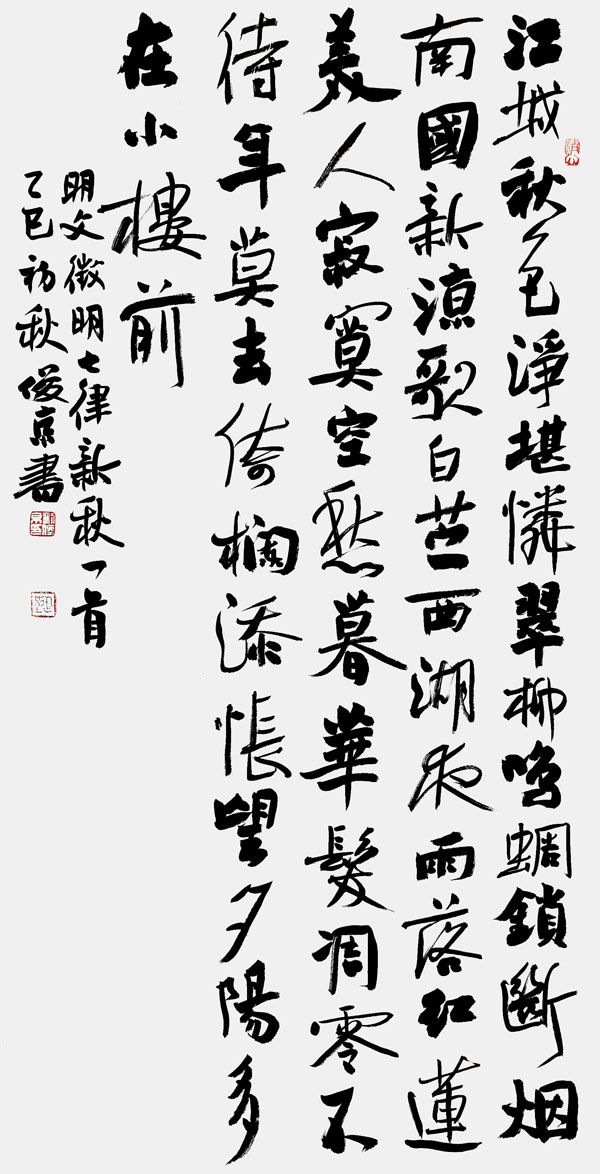 江城秋色淨堪憐翠柳鳴蜩鎖斷烟
南國新涼歌白苎西湖夜雨落紅蓮
美人寂寞空愁暮華髮凋零不
待年莫去倚欄添悵望夕陽多
在小樓前
明文徵明七律新秋一首
乙巳初秋俊京書